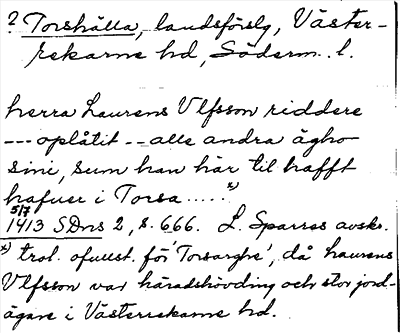 ? Torshälla, landsförslg, Väster-
rekarne hd, Söderm. l.
herra Laurens Vlfsson riddere
--- oplåtit -- alle andra ägho
sine, sum han här til hafft
hafuer i Torsa ..... x)
5/7
1413 SDns 2, s. 666. L. Sparres avskr.
x) trol. ofullst. för 'Torsarghe', då Laurens
Vlfsson var häradshövding och stor jord-
ägare i Västerrekarne hd.